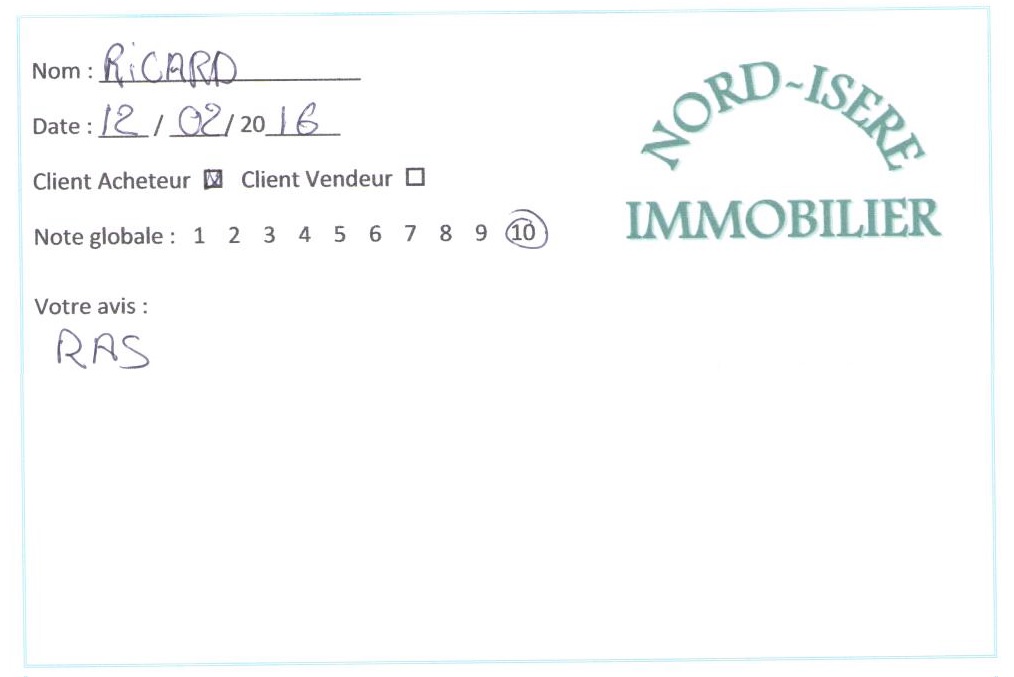 Nom : RiCARD
Date : 12 / 02 / 20 16
Client Acheteur ☒ Client Vendeur ☐
Note globale : 1 2 3 4 5 6 7 8 9 10
Votre avis :
RAS
NORD-ISERE
IMMOBILIER